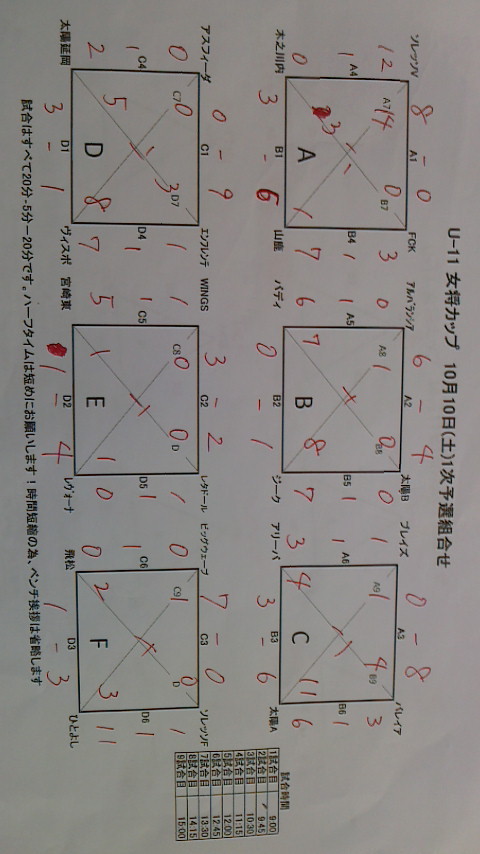 U-11 女将カップ 10月10日(土)1次予選組合せ
ソレッソV 8 - 0 FCK
A1
12 A4 1 0
A7 14 0 B7
A
3 B4 1 7
3 - 6
B1
木之川内 山鹿
アルパラシア 6 - 4 太陽B
A2
0 A5 1 6
A8 1 0 B8
B
7 8
0 B5 1 7
0 - 1
B2
バディ ジーク
ブレイズ 0 - 8 バレイア
A3
1 A6 1 3
A9 1 4 B9
C
4 11
3 B6 1 6
3 - 6
B3
アリーバ 太陽A
アスフィーダ 0 - 9 エンフレンテ
C1
0 C4 1 2
C7 0 3 D7
D
5 8
1 D4 1 7
3 - 1
D1
太陽延岡 ヴィスポ
WINGS 3 - 2 レタドール
C2
1 C5 1 5
C8 0 0 D
E
1 1
1 D5 1 0
1 - 4
D2
宮崎東 レヴォーナ
ビッグウェーブ 7 - 0 ソレッソF
C3
0 C6 1 0
C9 1 0 D
F
2 3
1 D6 1 11
1 - 3
D3
飛松 ひとよし
試合はすべて20分-5分ー20分です。ハーフタイムは短めにお願いします！時間短縮の為、ベンチ挨拶は省略します
試合時間
1試合目 9:00
2試合目 9:45
3試合目 10:30
4試合目 11:15
5試合目 12:00
6試合目 12:45
7試合目 13:30
8試合目 14:15
9試合目 15:00